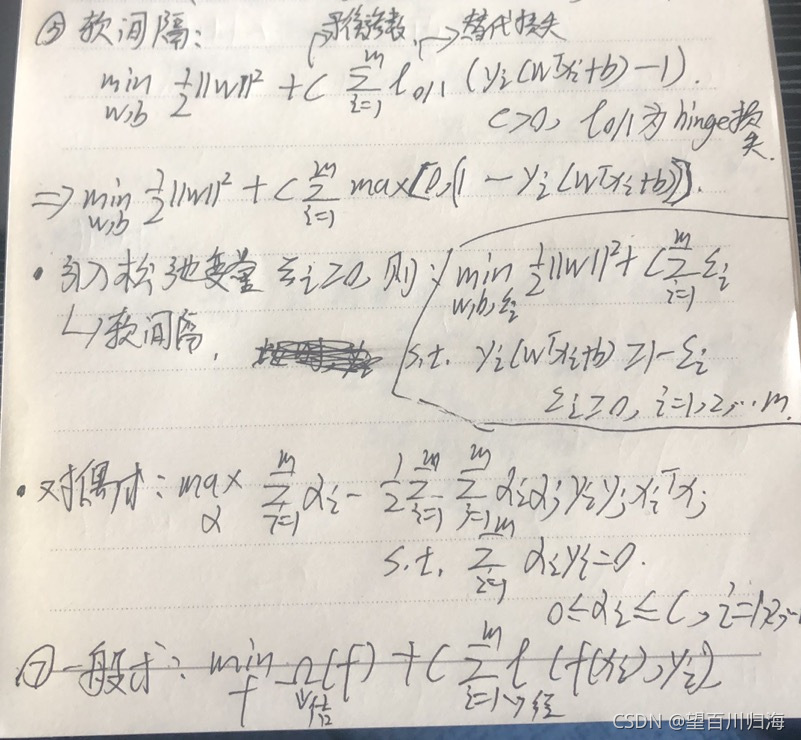 ⑤ 软间隔: 平衡参数 替代损失
min_{w,b} ½||w||² + C Σ_{i=1}^{m} l_{0/1} (y_i(w^T x_i+b)-1).
C>0, l_{0/1} 为 hinge损失.
⇒ min_{w,b} ½||w||² + C Σ_{i=1}^{m} max[0,(1-y_i(w^T x_i+b))].
• 引入松弛变量 ξ_i≥0, 则: min_{w,b,ξ_i} ½||w||² + C Σ_{i=1}^{m} ξ_i
↳ 软间隔. s.t. y_i(w^T x_i+b) ≥ 1-ξ_i
ξ_i≥0, i=1,2,...m.
• 对偶式: max_α Σ_{i=1}^{m} α_i - ½ Σ_{i=1}^{m} Σ_{j=1}^{m} α_i α_j y_i y_j x_i^T x_j
s.t. Σ_{i=1}^{m} α_i y_i=0.
0≤α_i≤C, i=1,2,...
⑦ 一般式: min_f Ω(f) + C Σ_{i=1}^{m} l (f(x_i), y_i)
结 经
CSDN @望百川归海